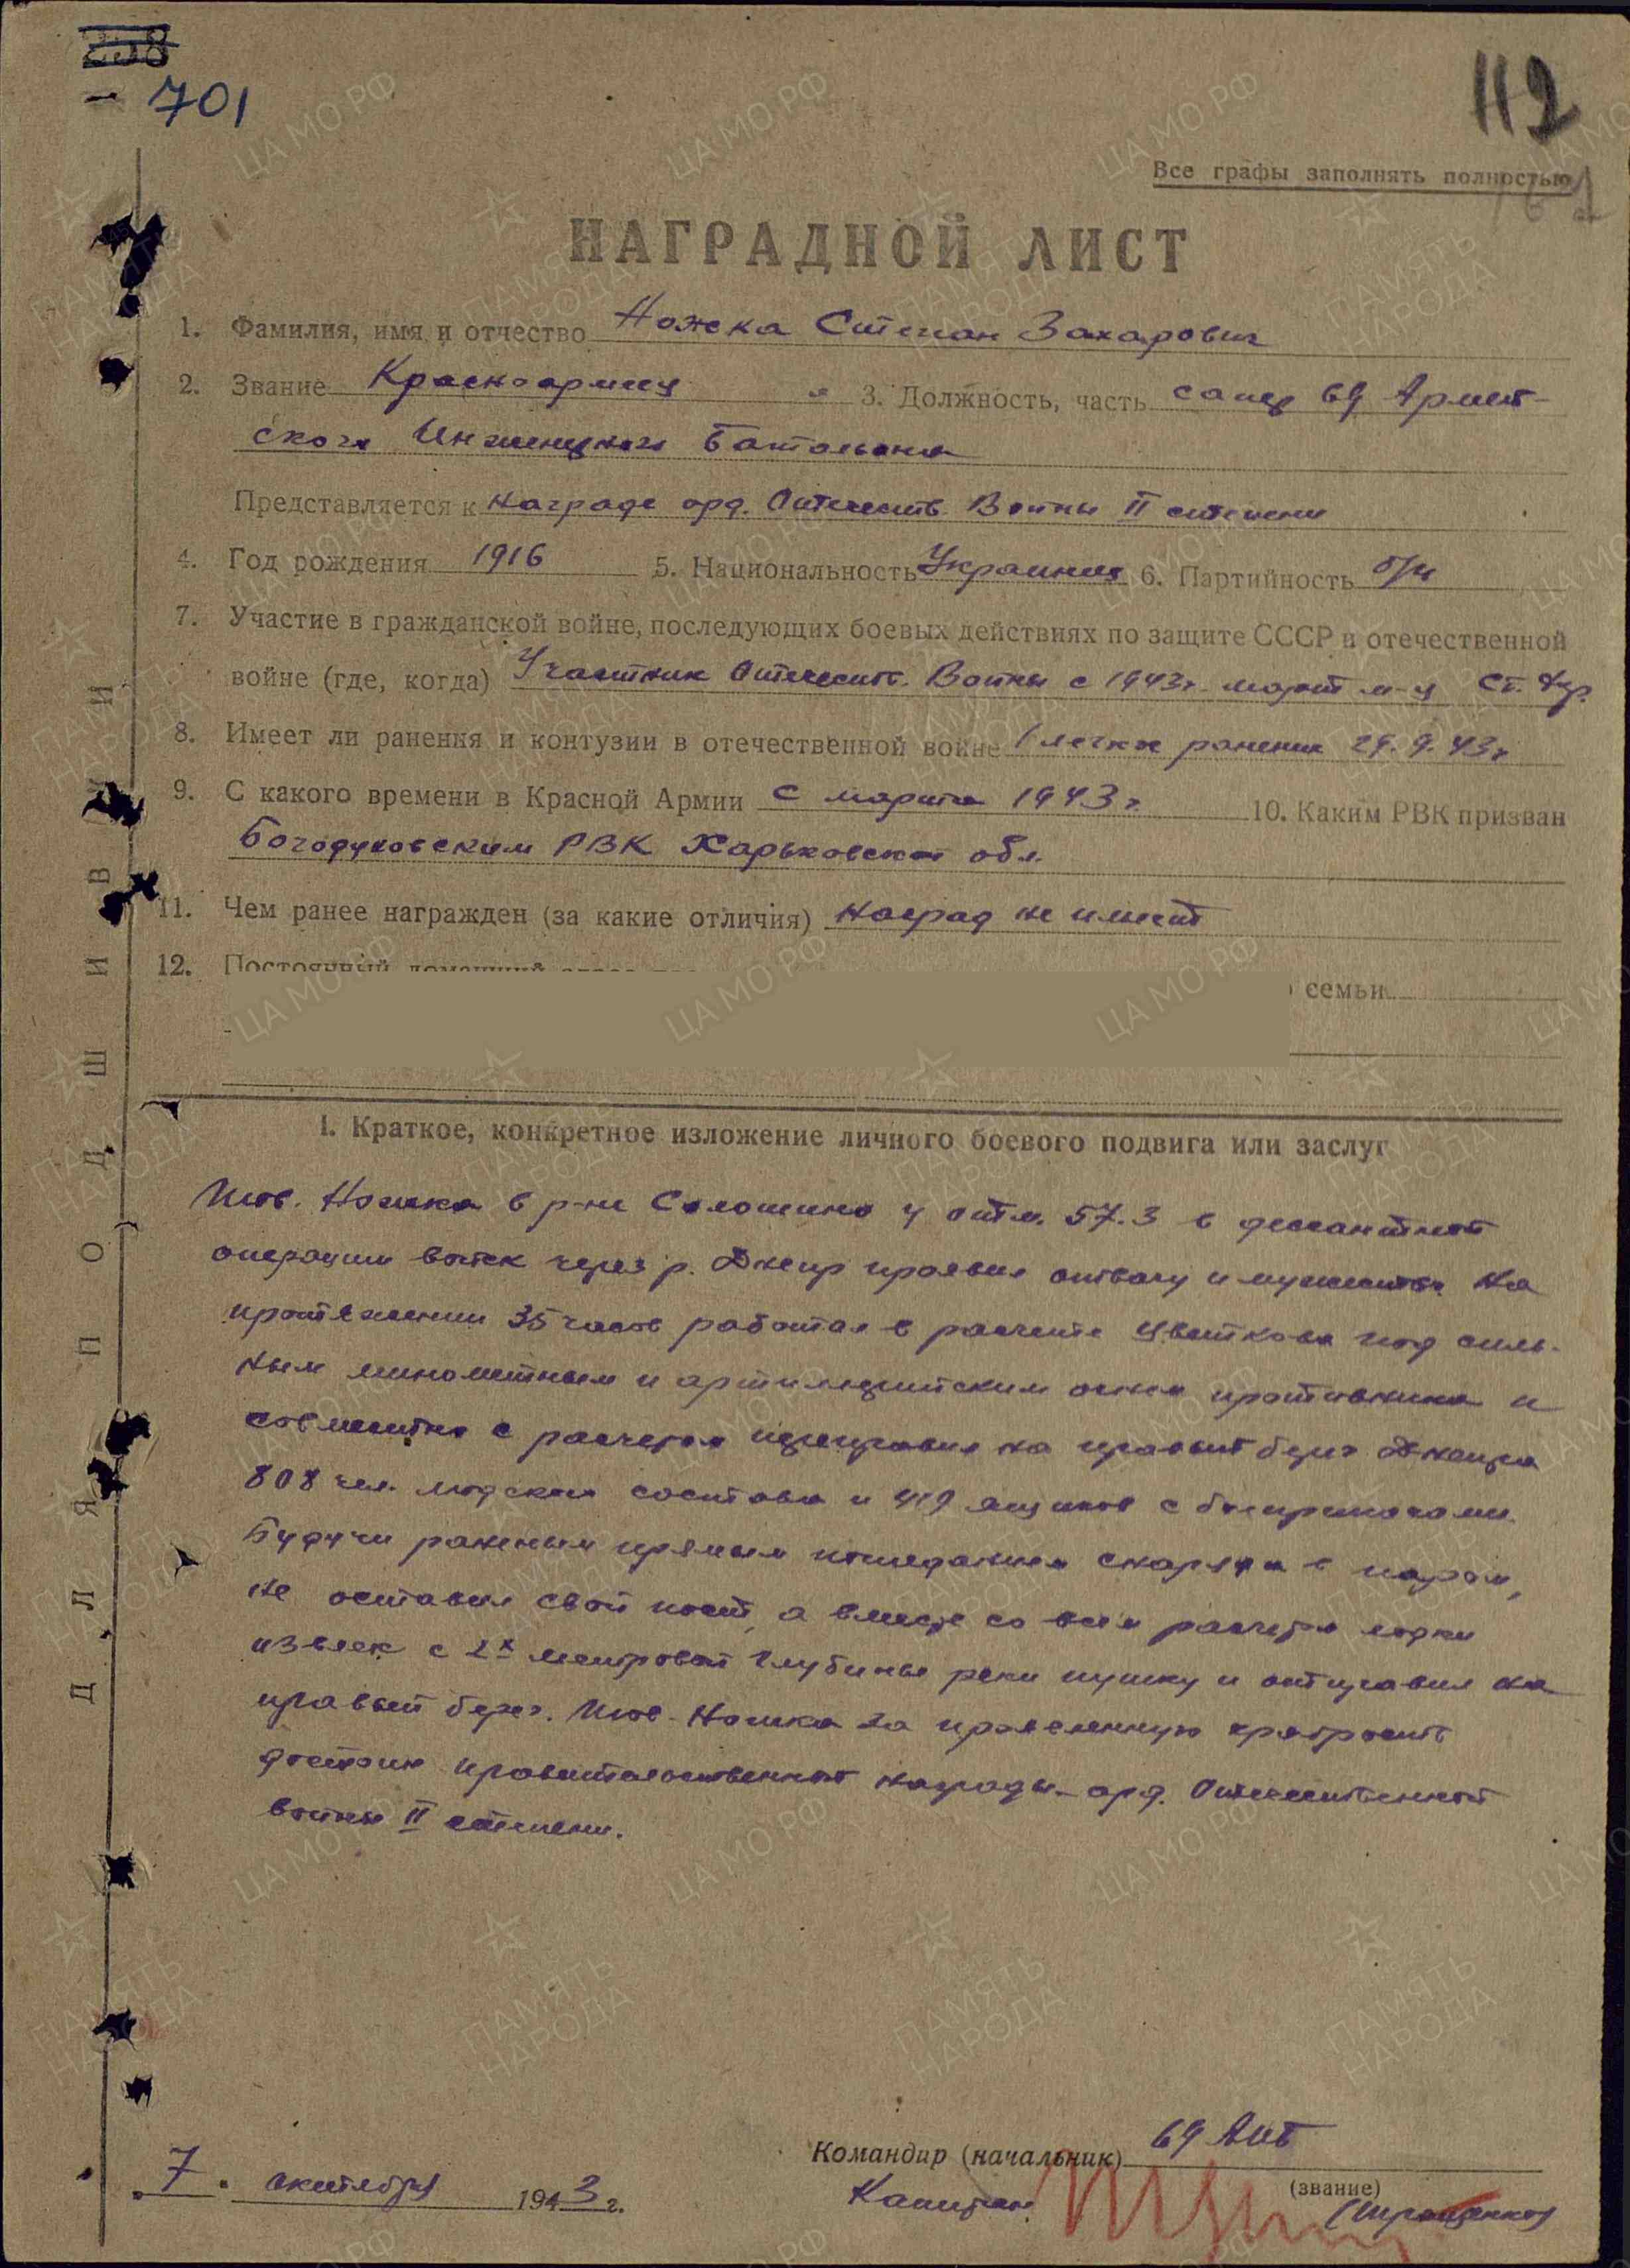 258
701
112
Все графы заполнять полностью
НАГРАДНОЙ ЛИСТ
1. Фамилия, имя и отчество Ножка Степан Захарович
2. Звание Красноармеец 3. Должность, часть сапер 69 Армей-
ского Инженерного Батальона
Представляется к награде орд. Отечеств. Войны II степени
4. Год рождения 1916 5. Национальность Украинец 6. Партийность б/п
7. Участие в гражданской войне, последующих боевых действиях по защите СССР и отечественной
войне (где, когда) Участник Отечеств. Войны с 1943г. март м-ц Ст. Фр.
8. Имеет ли ранения и контузии в отечественной войне 1 легкое ранение 29.9.43г
9. С какого времени в Красной Армии с марта 1943г. 10. Каким РВК призван
Богодуховским РВК Харьковской обл.
11. Чем ранее награжден (за какие отличия) наград не имеет
12. Постоянный домашний семьи
ДЛЯ ПОДШИВКИ
I. Краткое, конкретное изложение личного боевого подвига или заслуг
Тов. Ножка в р-не Солошино у отм. 57.3 в десантной
операции войск через р. Днепр проявил отвагу и мужество. На
протяжении 35 часов работал в расчете Цветкова под силь-
ным минометным и артиллерийским огнем противника и
совместно с расчетом переправил на правый берег Днепра
808 чел. людского состава и 419 ящиков с боеприпасами.
Будучи раненым прямым попаданием снаряда в паром,
не оставил свой пост, а вместе со всем расчетом лодки
извлек с 2х метровой глубины реки пушку и отправил на
правый берег. Тов. Ножка за проявленную храбрость
достоин правительственной награды - орд. Отечественной
войны II степени.
Командир (начальник) 69 АИБ
(звание)
7 октября 1943 г.
Капитан
ЦАМО РФ
ПАМЯТЬ НАРОДА